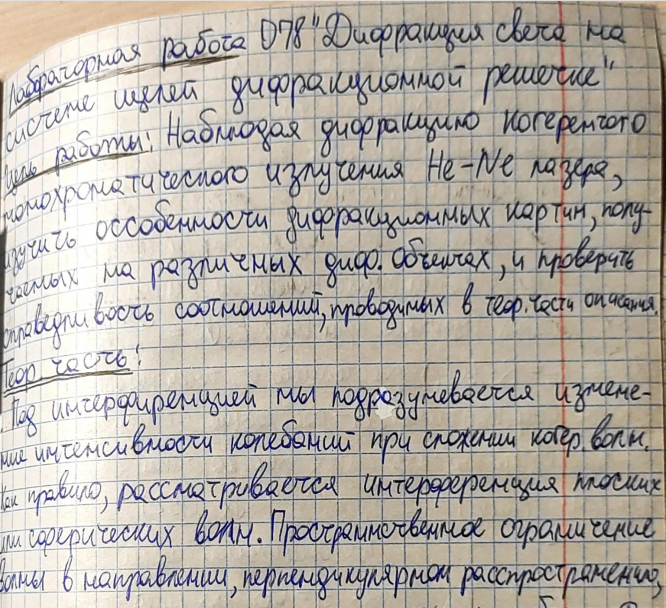 Лабораторная работа О78 "Дифракция света на
системе щелей дифракционной решетке"
Цель работы: Наблюдая дифракцию когерентого
монохроматического излучения He-Ne лазера,
изучить оссобенности дифракционных картин, полу-
ченых на различных диф. объектах, и проверить
справедливость соотношений, проводимых в теор. части описания.
Теор. часть:
Под интерфиренцией мы подразумевается измене-
ние интенсивности колебаний при сложении когер. волн.
Как правило, рассматривается интерференция плоских
или сферических волн. Пространственное ограничение
волны в направлении, перпендикулярном расспространению,